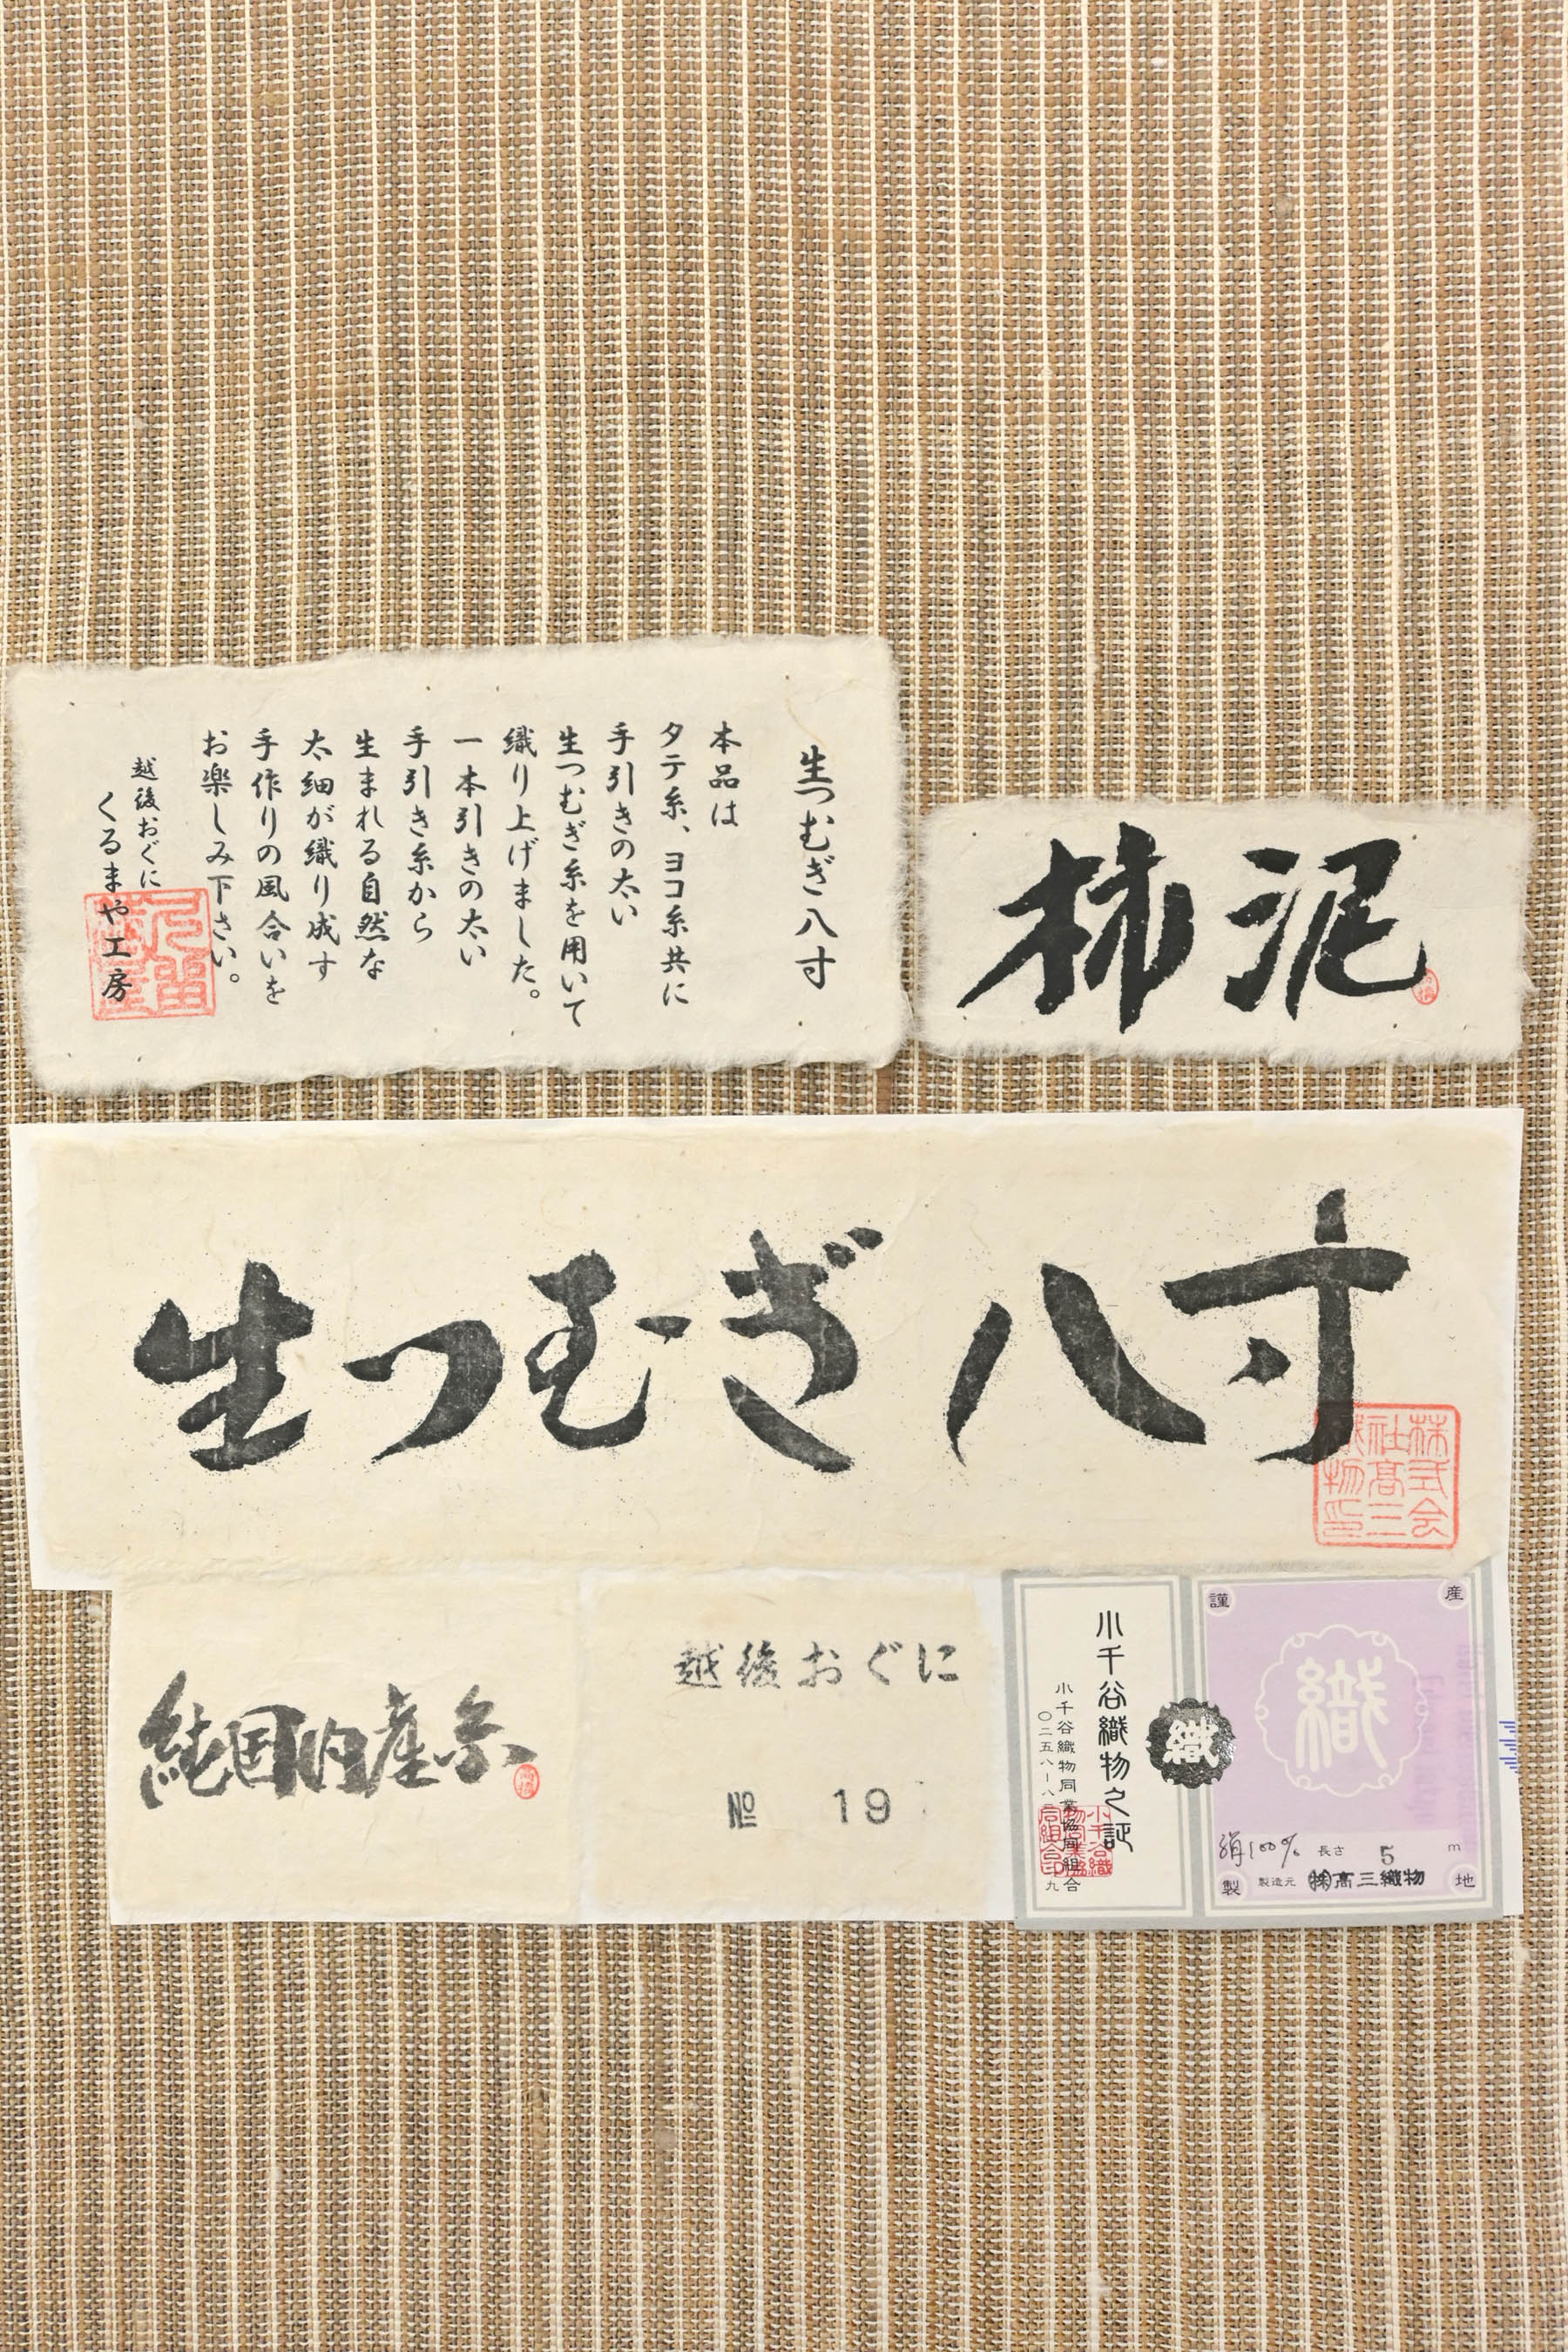 生つむぎ八寸
本品は
タテ糸、ヨコ糸共に
手引きの太い
生つむぎ糸を用いて
織り上げました。
一本引きの太い
手引き糸から
生まれる自然な
太細が織り成す
手作りの風合いを
お楽しみ下さい。
越後おぐに
くるまや工房
柿泥
生つむぎ八寸
株式会
社髙三
織物印
純国内産糸
越後おぐに
№ 19
小千谷織物之証
小千谷織物同業協同組合
小千谷織
物同業協
同組合印
織
謹
産
織
絹100% 長さ 5 m
製 製造元 ㈱髙三織物 地